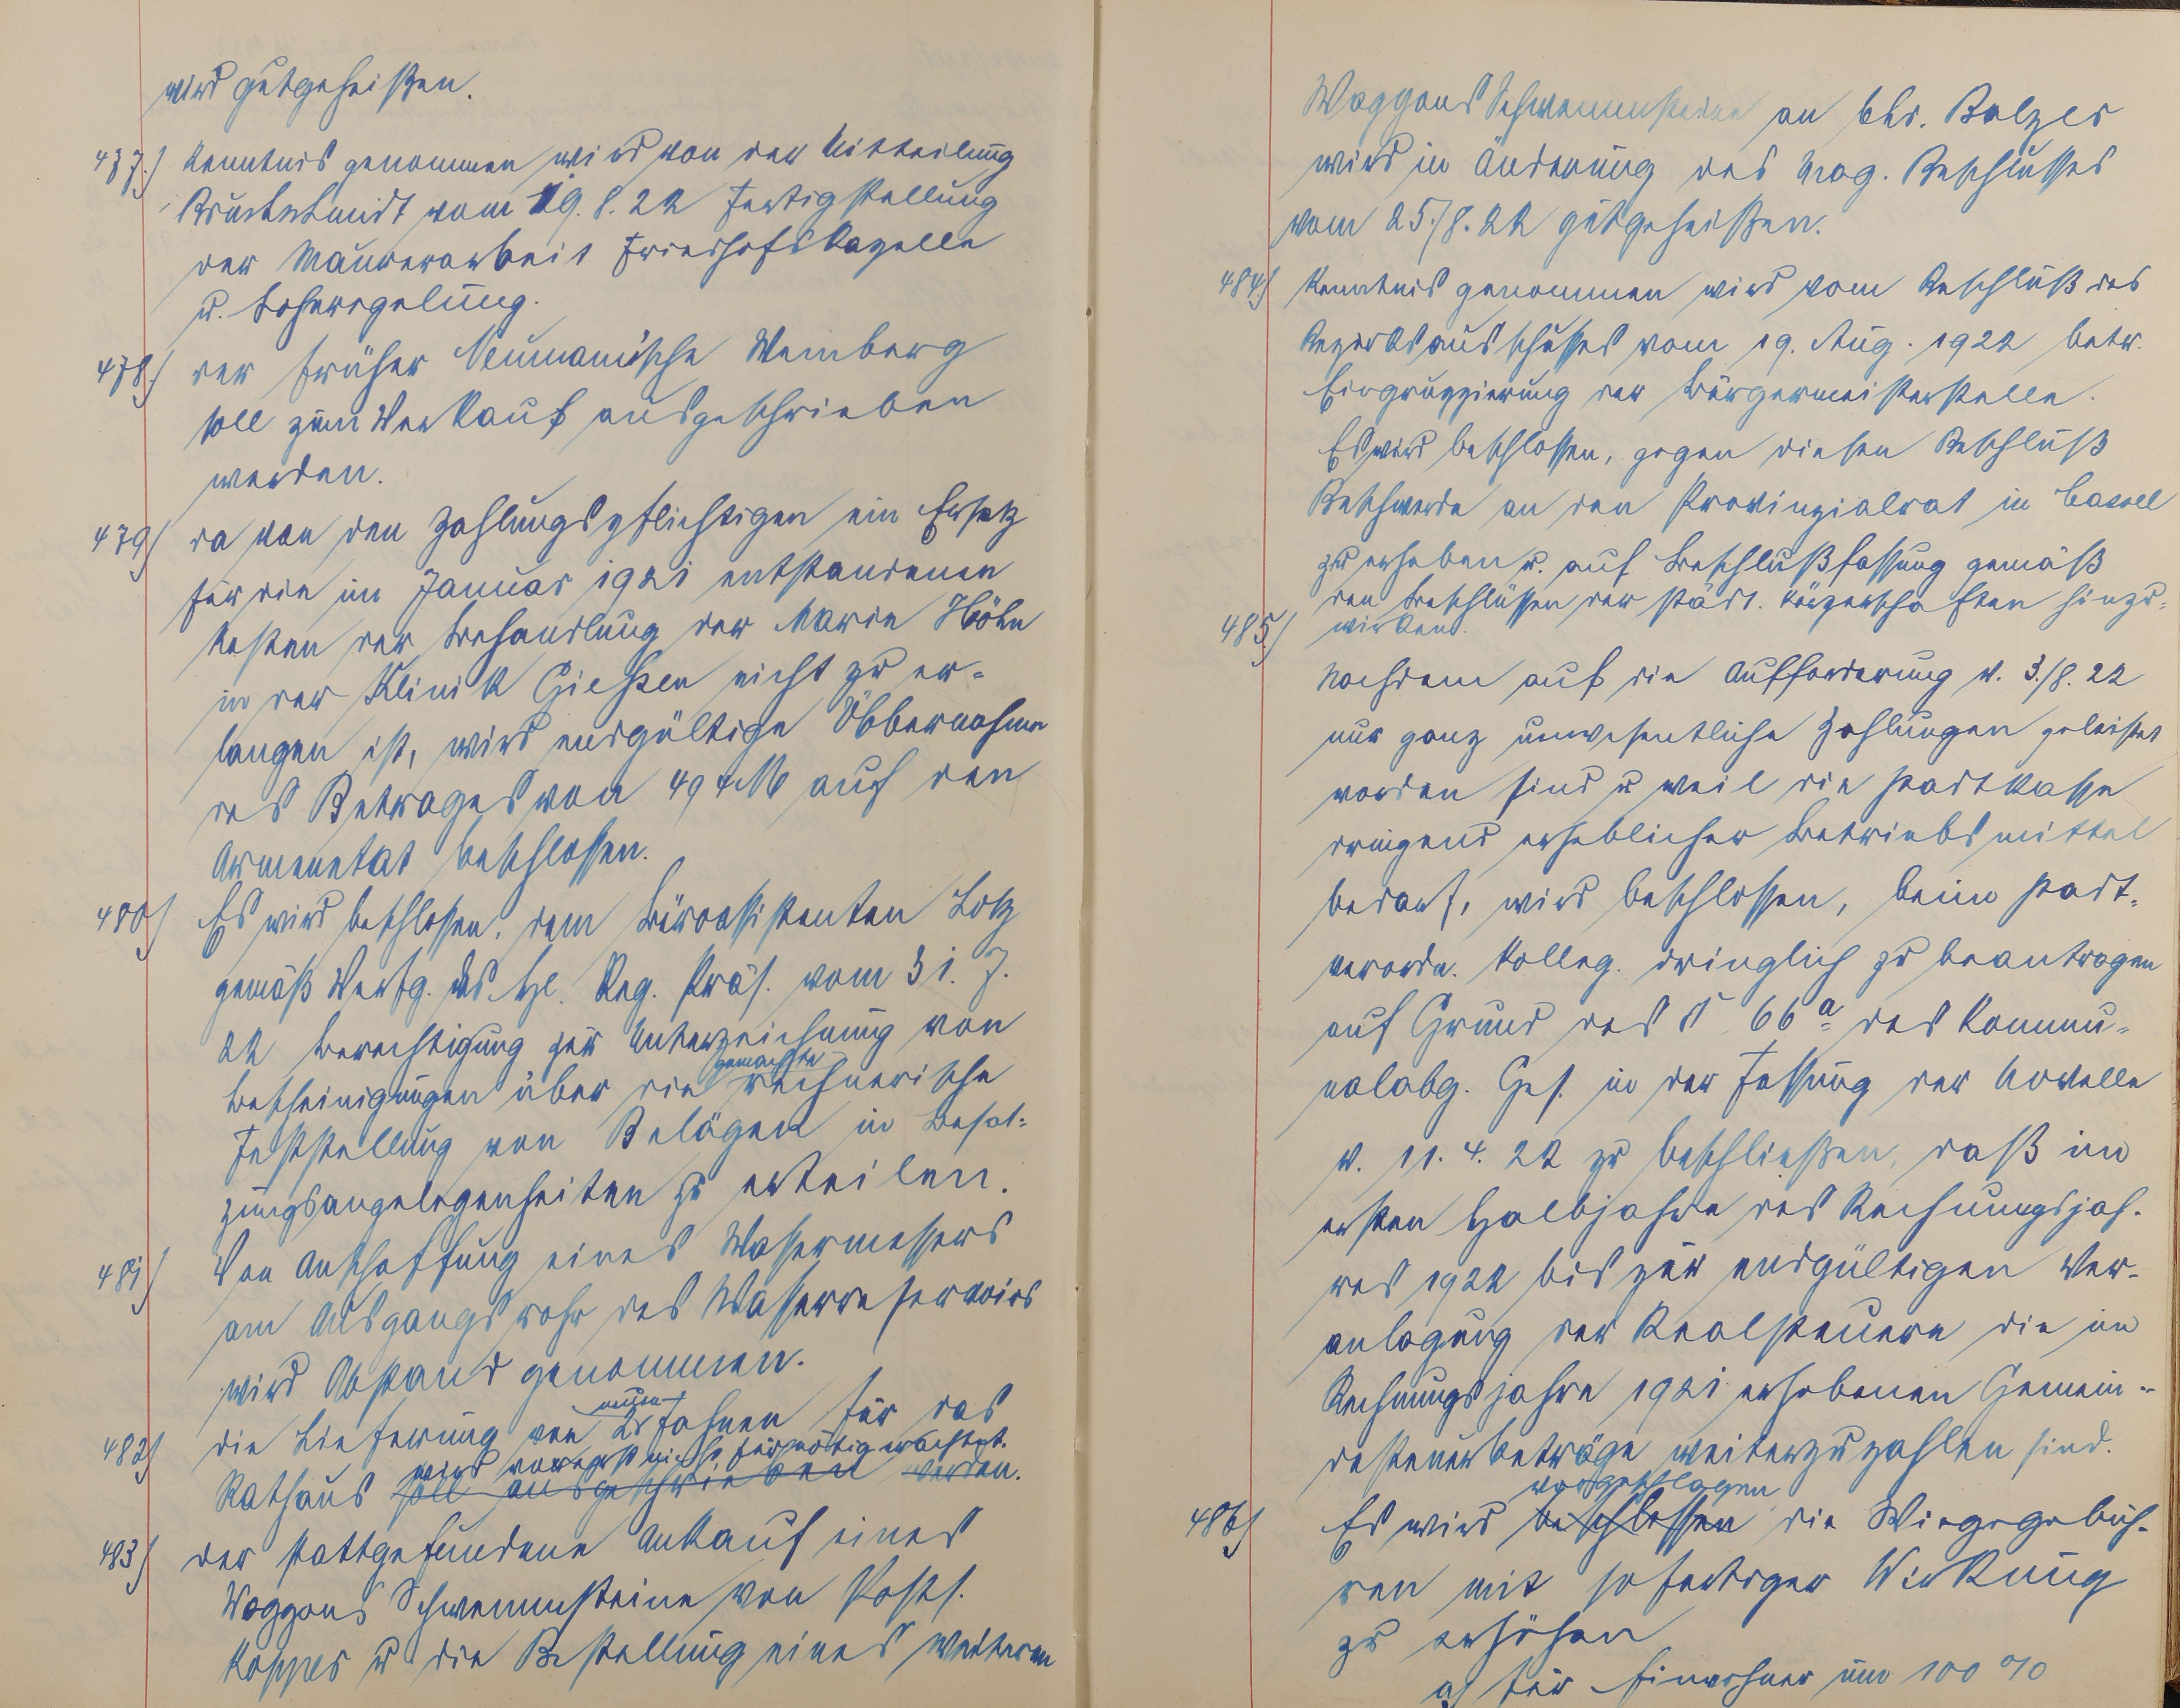 wird gutgeheißen.
477.) Kenntnis genommen wird von der Mitteilung
Bruchschmidt vom 19.8.22 Fertigstellung
der Maurerarbeit Friedhofskapelle
u. Lohnregelung.
478.) der früher Neumanische Weinberg
soll zum Verkauf ausgeschrieben
werden.
479) da von den Zahlungspflichtigen ein Ersatz
für die im Januar 1921 entstandenen
Kosten der Behandlung der Marie Höhn
in der Klinik Giessen nicht zu er-
langen ist, wird endgültige Übbernahme
des Betrages von 494 M auf den
Armenetat beschlossen.
480) Es wird beschlossen, dem Büroassistenten Lotz
gemäß Verfg. des H. Reg. Präs. vom 31. 7.
22 Berechtigung zur Unterzeichnung von
Bescheinigungen über die gemachte rechnerische
Feststellung von Belägen in Besol-
dungsangelegenheiten zu erteilen.
481) Von Anschaffung eines Wassermessers
am Ausgangsrohr des Wasserreservoirs
wird Abstand genommen.
482) die Lieferung von 2 neuen Fahnen für das
Rathaus soll ausgeschrieben werden.
wird vorerst nicht für nötig erachtet.
483) der stattgefundene Ankauf eines
Waggons Schwemmsteine von Posts.
Koppes u die Bestellung eines weiteren
Waggons Schwemmsteine an Chr. Balzer
wird in Änderung des Mag. Beschlusses
vom 25./8.22 gutgeheißen.
484.) Kenntnis genommen wird vom Beschluß des
Bezirksausschusses vom 19. Aug. 1922 betr.
Eingruppierung der Bürgermeisterstelle.
Es wird beschlossen, gegen diesen Beschluß
Beschwerde an den Provinzialrat in Cassel
zu erheben u. auf Beschlußfassung gemäß
den Beschlüssen der städt. Körperschaften hinzu-
wirken.
485.) Nachdem auf die Aufforderung v. 3./8.22
nur ganz unwesentliche Zahlungen geleistet
worden sind u weil die Stadtkasse
dringend erheblicher Betriebsmittel
bedarf, wird beschlossen, beim Stadt-
verordn. Kolleg. dringlich zu beantragen
auf Grund des § 66a des Kommu-
nalabg. Ges. in der Fassung der Novelle
v. 11.4.22 zu beschließen, daß im
ersten Halbjahre des Rechnungsjah-
res 1922 bis zur endgültigen Ver-
anlagung der Realsteuern die im
Rechnungsjahre 1921 erhobenen Gemein-
desteuerbeträge weiterzuzahlen sind.
486) Es wird beschlossen vorgeschlagen die Wiegegebüh-
ren mit sofortiger Wirkung
zu erhöhen
a) für Einwohner um 100 %